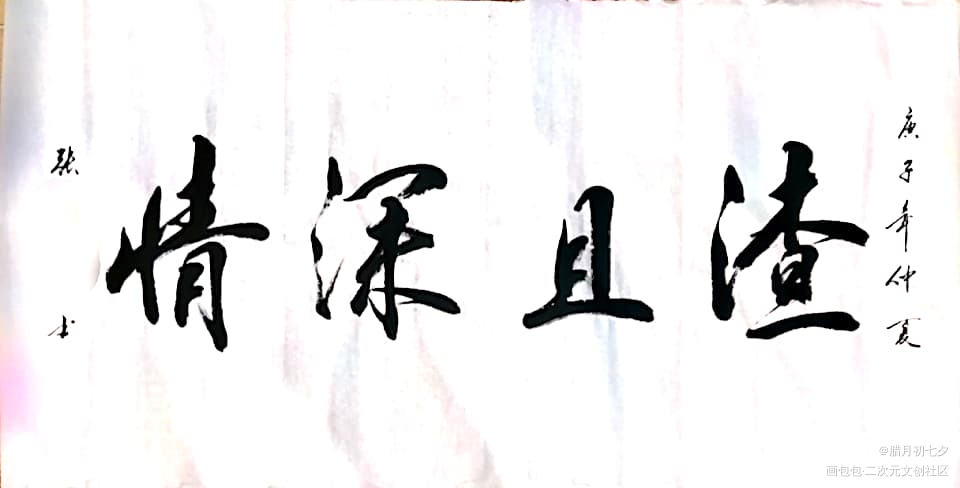 庚子年仲夏
渣且深情
张
书
@腊月初七夕
画包包·二次元文创社区